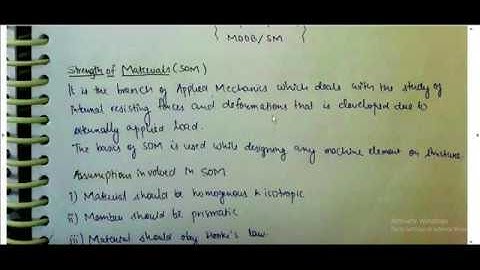 MODB/SM
Strength of Materials (SOM)
It is the branch of Applied Mechanics which deals with the study of
internal resisting forces and deformations that is developed due to
externally applied load.
The basics of SOM is used while designing any machine element or structure.
Assumptions involved in SOM
i) Material should be homogenous & isotropic
ii) Member should be prismatic
iii) Material should obey Hooke's law.
Activate Windows